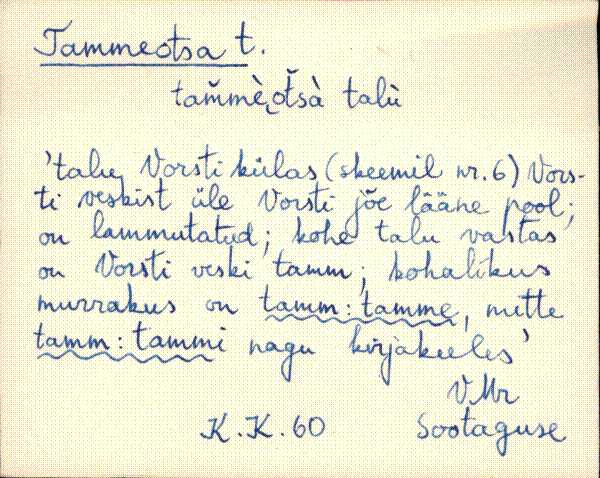 Tammeotsa t.
tam̌mè˛ot̆sà talù
'talu Vorsti külas (skeemil nr. 6) Vors-
ti veskist üle Vorsti jõe lääne pool;
on lammutatud; kohe talu vastas
on Vorsti veski tamm; kohalikus
murrakus on tamm: tamme, mitte
tamm: tammi nagu kirjakeeles'
V Mr
K. K. 60 Sootaguse